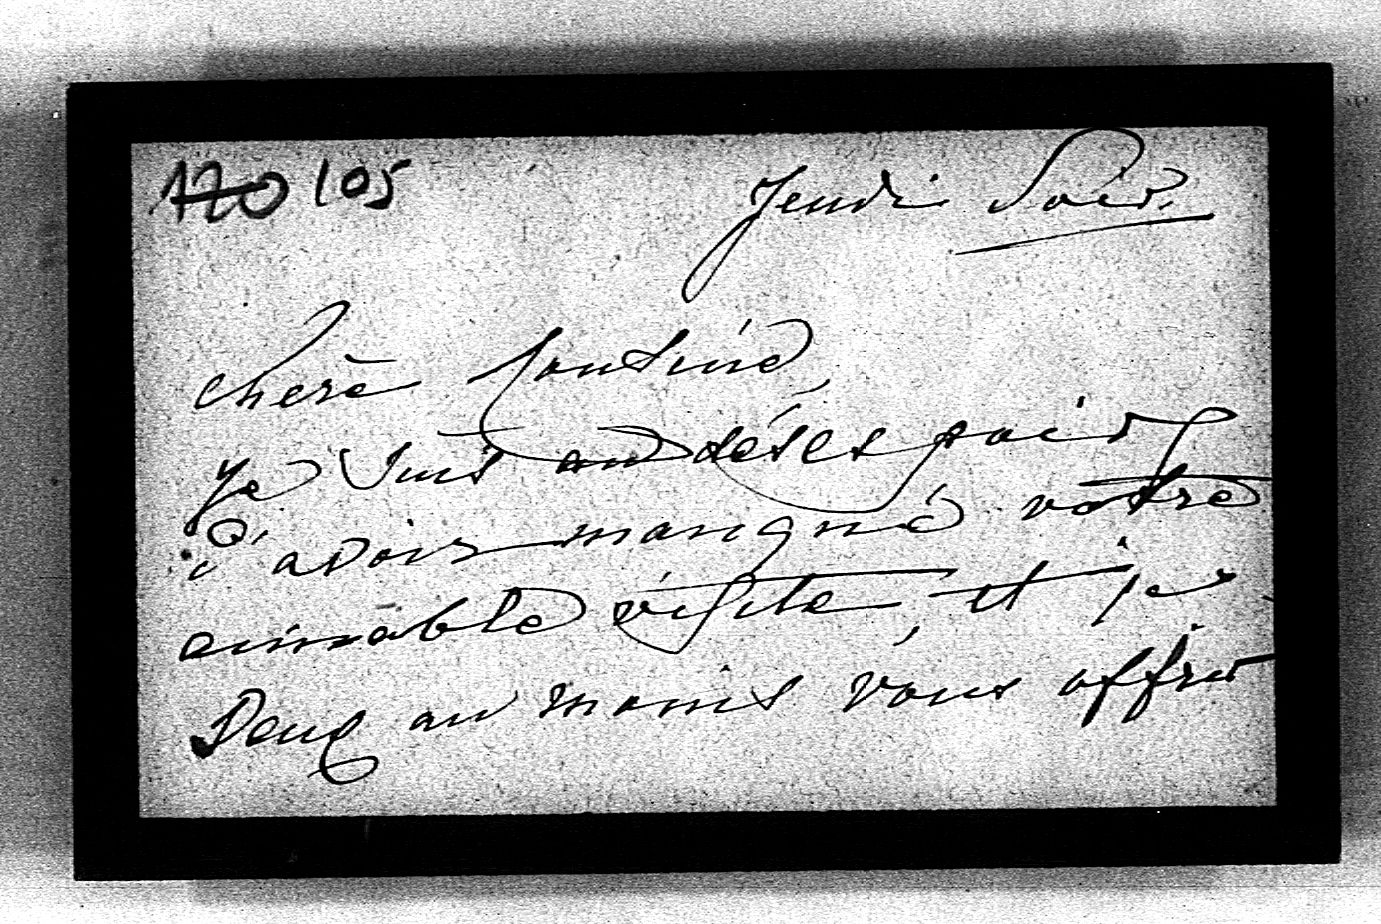 170 105
Jeudi Soir.
chère Cousine,
Je suis au désespoir
d'avoir manqué votre
aimable visite, et je
veux au moins vous offrir